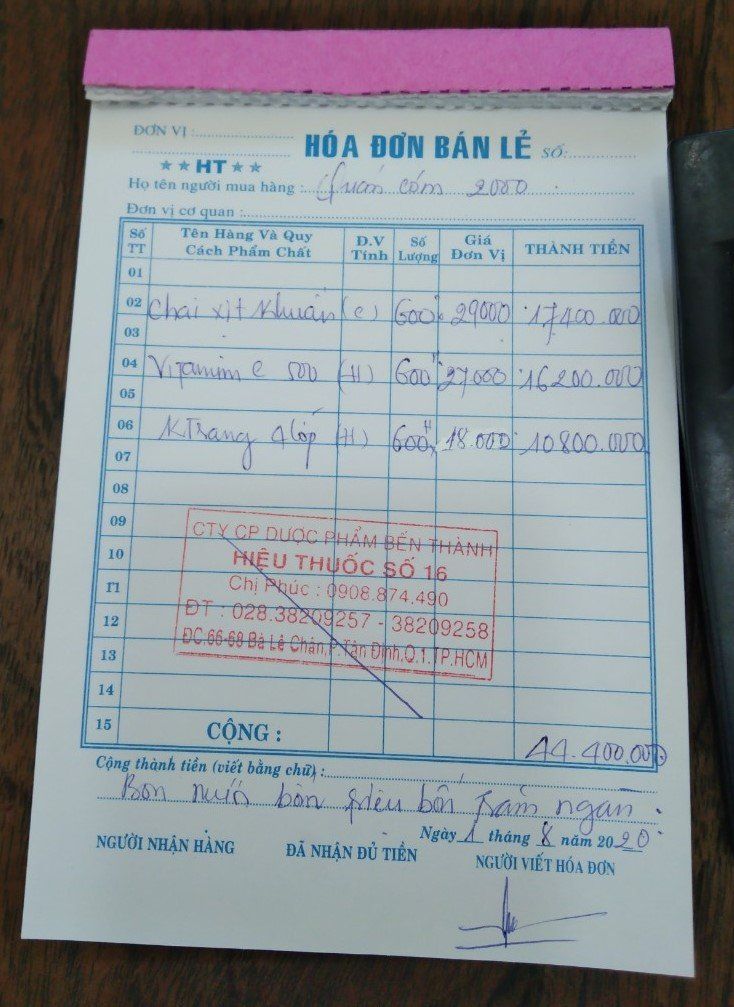 ĐƠN VỊ :
HÓA ĐƠN BÁN LẺ SỐ:
★★HT★★
Họ tên người mua hàng : Quán cơm 2000
Đơn vị cơ quan :
Số TT Tên Hàng Và Quy Cách Phẩm Chất Đ.V Tính Số Lượng Giá Đơn Vị THÀNH TIỀN
01
02 Chai xịt khuẩn (c) 600 x 29000 : 17400.000
03
04 Vitamim C 500 (H) 600H x 27000 : 16200.000
05
06 K Trang 4 lớp (H) 600H x 18.000 : 10800.000
07
08
09
10
11
12
13
14
15 CỘNG : 44.400.000
CTY CP DƯỢC PHẨM BẾN THÀNH
HIỆU THUỐC SỐ 16
Chị Phúc : 0908.874.490
ĐT : 028.38209257 - 38209258
ĐC:66-68 Bà Lê Chân,P.Tân Định,Q.1,TP.HCM
Cộng thành tiền (viết bằng chữ) :
Bốn mươi bốn triệu bốn trăm ngàn.
Ngày 1 tháng 8 năm 2020
NGƯỜI NHẬN HÀNG ĐÃ NHẬN ĐỦ TIỀN NGƯỜI VIẾT HÓA ĐƠN